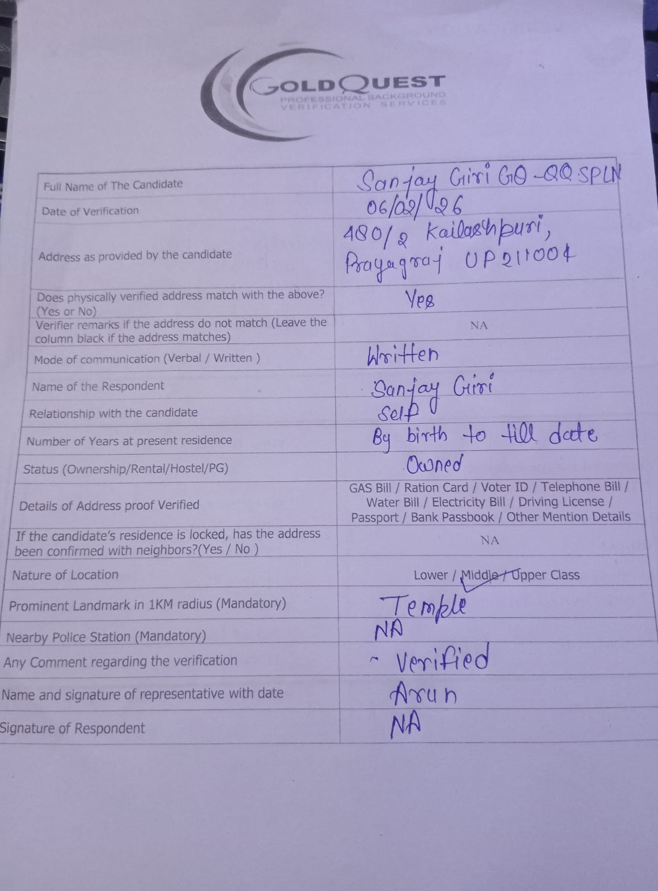 GOLDQUEST
PROFESSIONAL BACKGROUND
VERIFICATION SERVICES
Full Name of The Candidate
Sanjay Giri GQ-QQSPLN
Date of Verification
06/02/26
Address as provided by the candidate
480/2 Kailashpuri,
Prayagraj UP 211004
Does physically verified address match with the above?
(Yes or No)
Yes
Verifier remarks if the address do not match (Leave the
column black if the address matches)
NA
Mode of communication (Verbal / Written )
Written
Name of the Respondent
Sanjay Giri
Relationship with the candidate
Self
Number of Years at present residence
By birth to till date
Status (Ownership/Rental/Hostel/PG)
Owned
Details of Address proof Verified
GAS Bill / Ration Card / Voter ID / Telephone Bill /
Water Bill / Electricity Bill / Driving License /
Passport / Bank Passbook / Other Mention Details
If the candidate's residence is locked, has the address
been confirmed with neighbors?(Yes / No )
NA
Nature of Location
Lower / Middle / Upper Class
Prominent Landmark in 1KM radius (Mandatory)
Temple
Nearby Police Station (Mandatory)
NA
Any Comment regarding the verification
- Verified
Name and signature of representative with date
Arun
Signature of Respondent
NA